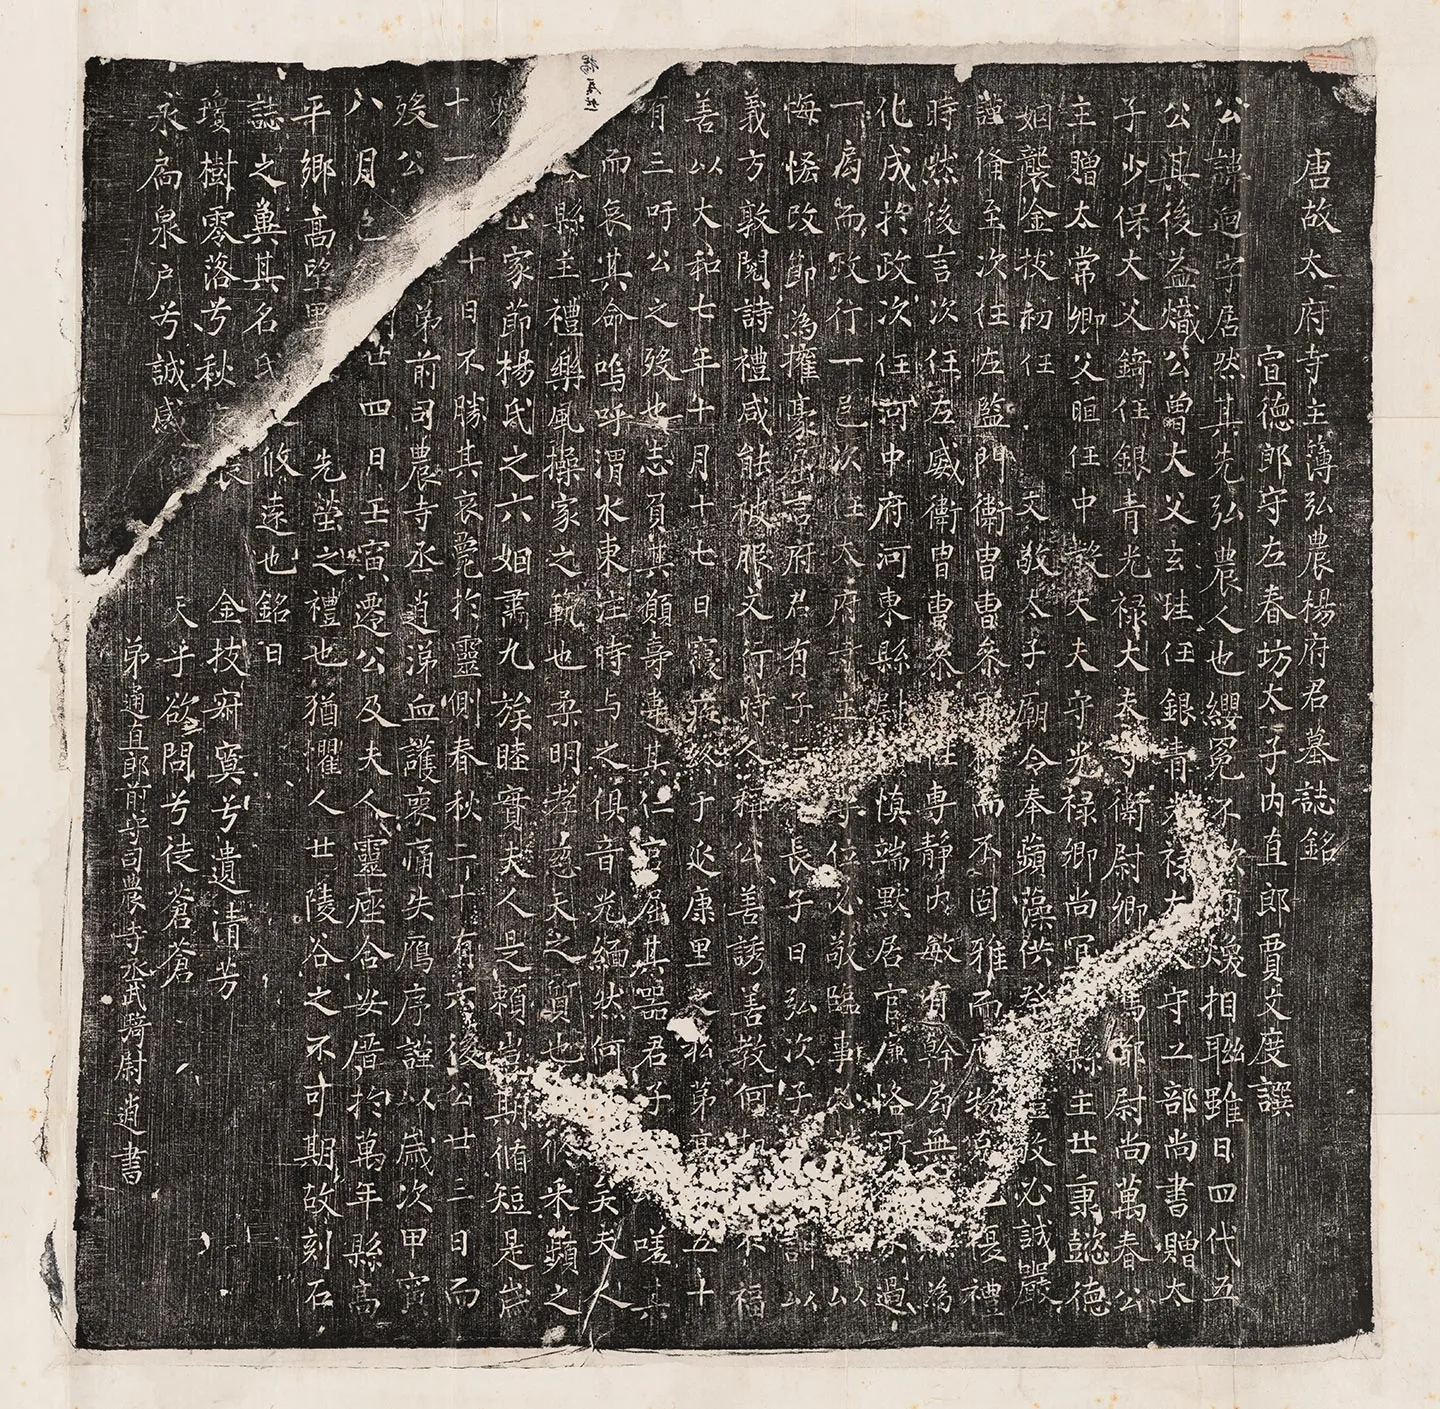 唐故太府寺主簿弘農楊府君墓誌銘
宣德郎守左春坊太子内直郎賈文度譔
公諱迥字居然其先弘農人也纓冕不 煥相聯雖日四代五
公其後益熾公曾大父玄珪任銀青光禄大夫守工部尚書贈太
子少保大父錡任銀青光禄大夫守衛尉卿駙馬都尉尚萬春公
主贈太常卿父晅任中散大夫守光禄卿尚冝 縣主公秉懿德
姻襲金枝初任 文敬太子廟令奉蘋藻供 禮敬必誠嚴
謹脩至次任左監門衛胄曹參 而不固雅而 物 復禮
時然後言次任左威衛胄曹參 性專靜内敏有幹局無 為
化成於政次任河中府河東縣尉 慎端默居官廉恪所 過
一扃而政行一邑次任太府寺主 守位必敬臨事必 以
悔恡改節為權豪 言府君有子 長子曰弘次子 訓以
義方敦閱詩禮咸能被服文行時人稱公善誘善教何期 不福
善以大和七年十月十七日寢疾終于永康里之私第享 五十
有三吁公之殁也志負其願壽 其仁官屈其噐君子 嗟其
而哀其命嗚呼渭水東注時与之俱音光緬然何 矣夫人
縣主禮樂風操家之範也柔明孝慈天之質也 采蘋之
家節楊氏之六姻肅九族睦實夫人是賴豈期脩短是歲
十一 十日不勝其哀薨於靈側春秋二十有六後公廿三日而
殁公 弟前司農寺丞逍涕血護喪痛失鴈序謹以歲次甲寅
八月 廿四日壬寅遷公及夫人靈座合安厝於萬年縣高
平鄉高望里 先塋之禮也猶懼人世陵谷之不可期故刻石
誌之冀其名氏 攸遠也銘曰
瓊樹零落兮秋 金枝 寞兮遺清芳
永扃泉户兮誠感 天乎欲問兮徒蒼蒼
弟通直郎前守司農寺丞武騎尉逍書